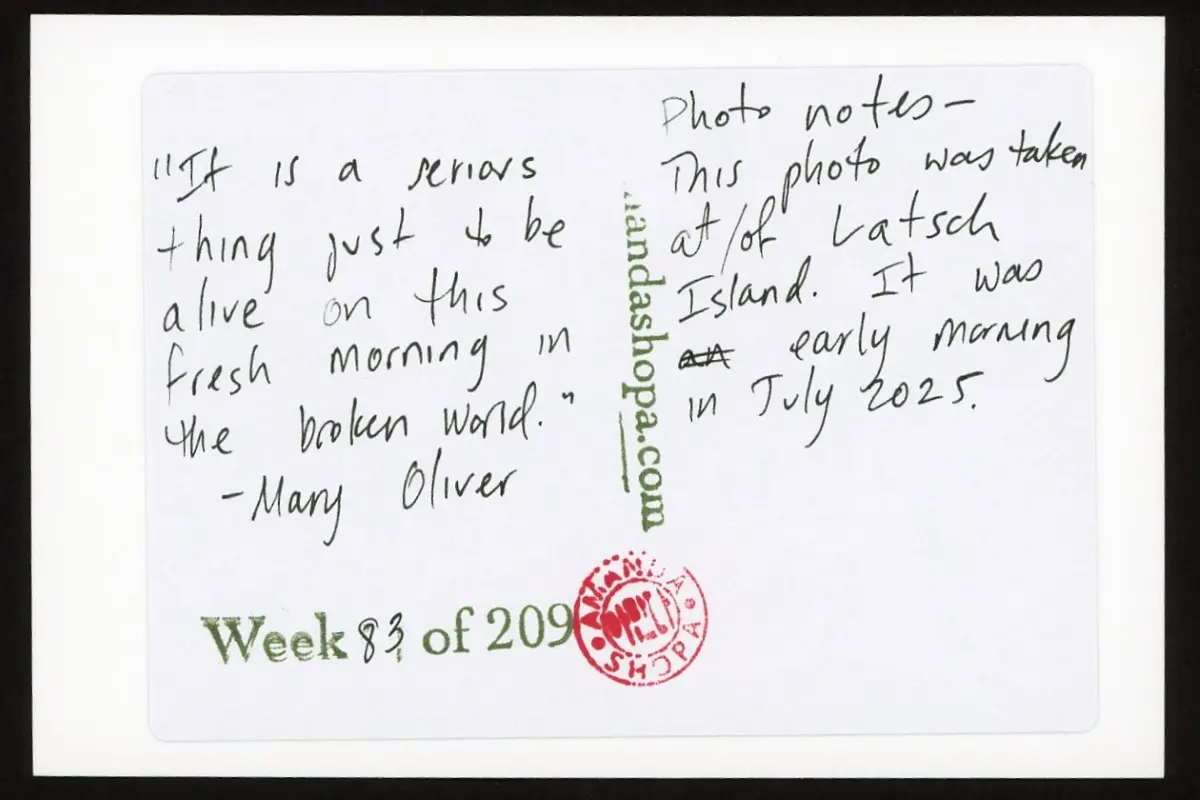 "It is a serious
thing just to be
alive on this
fresh morning in
the broken world."
-Mary Oliver
Photo notes-
This photo was taken
at/of Latsch
Island. It was
early morning
in July 2025.
andashopa.com
Week 83 of 209
AMANDA
SHOPA